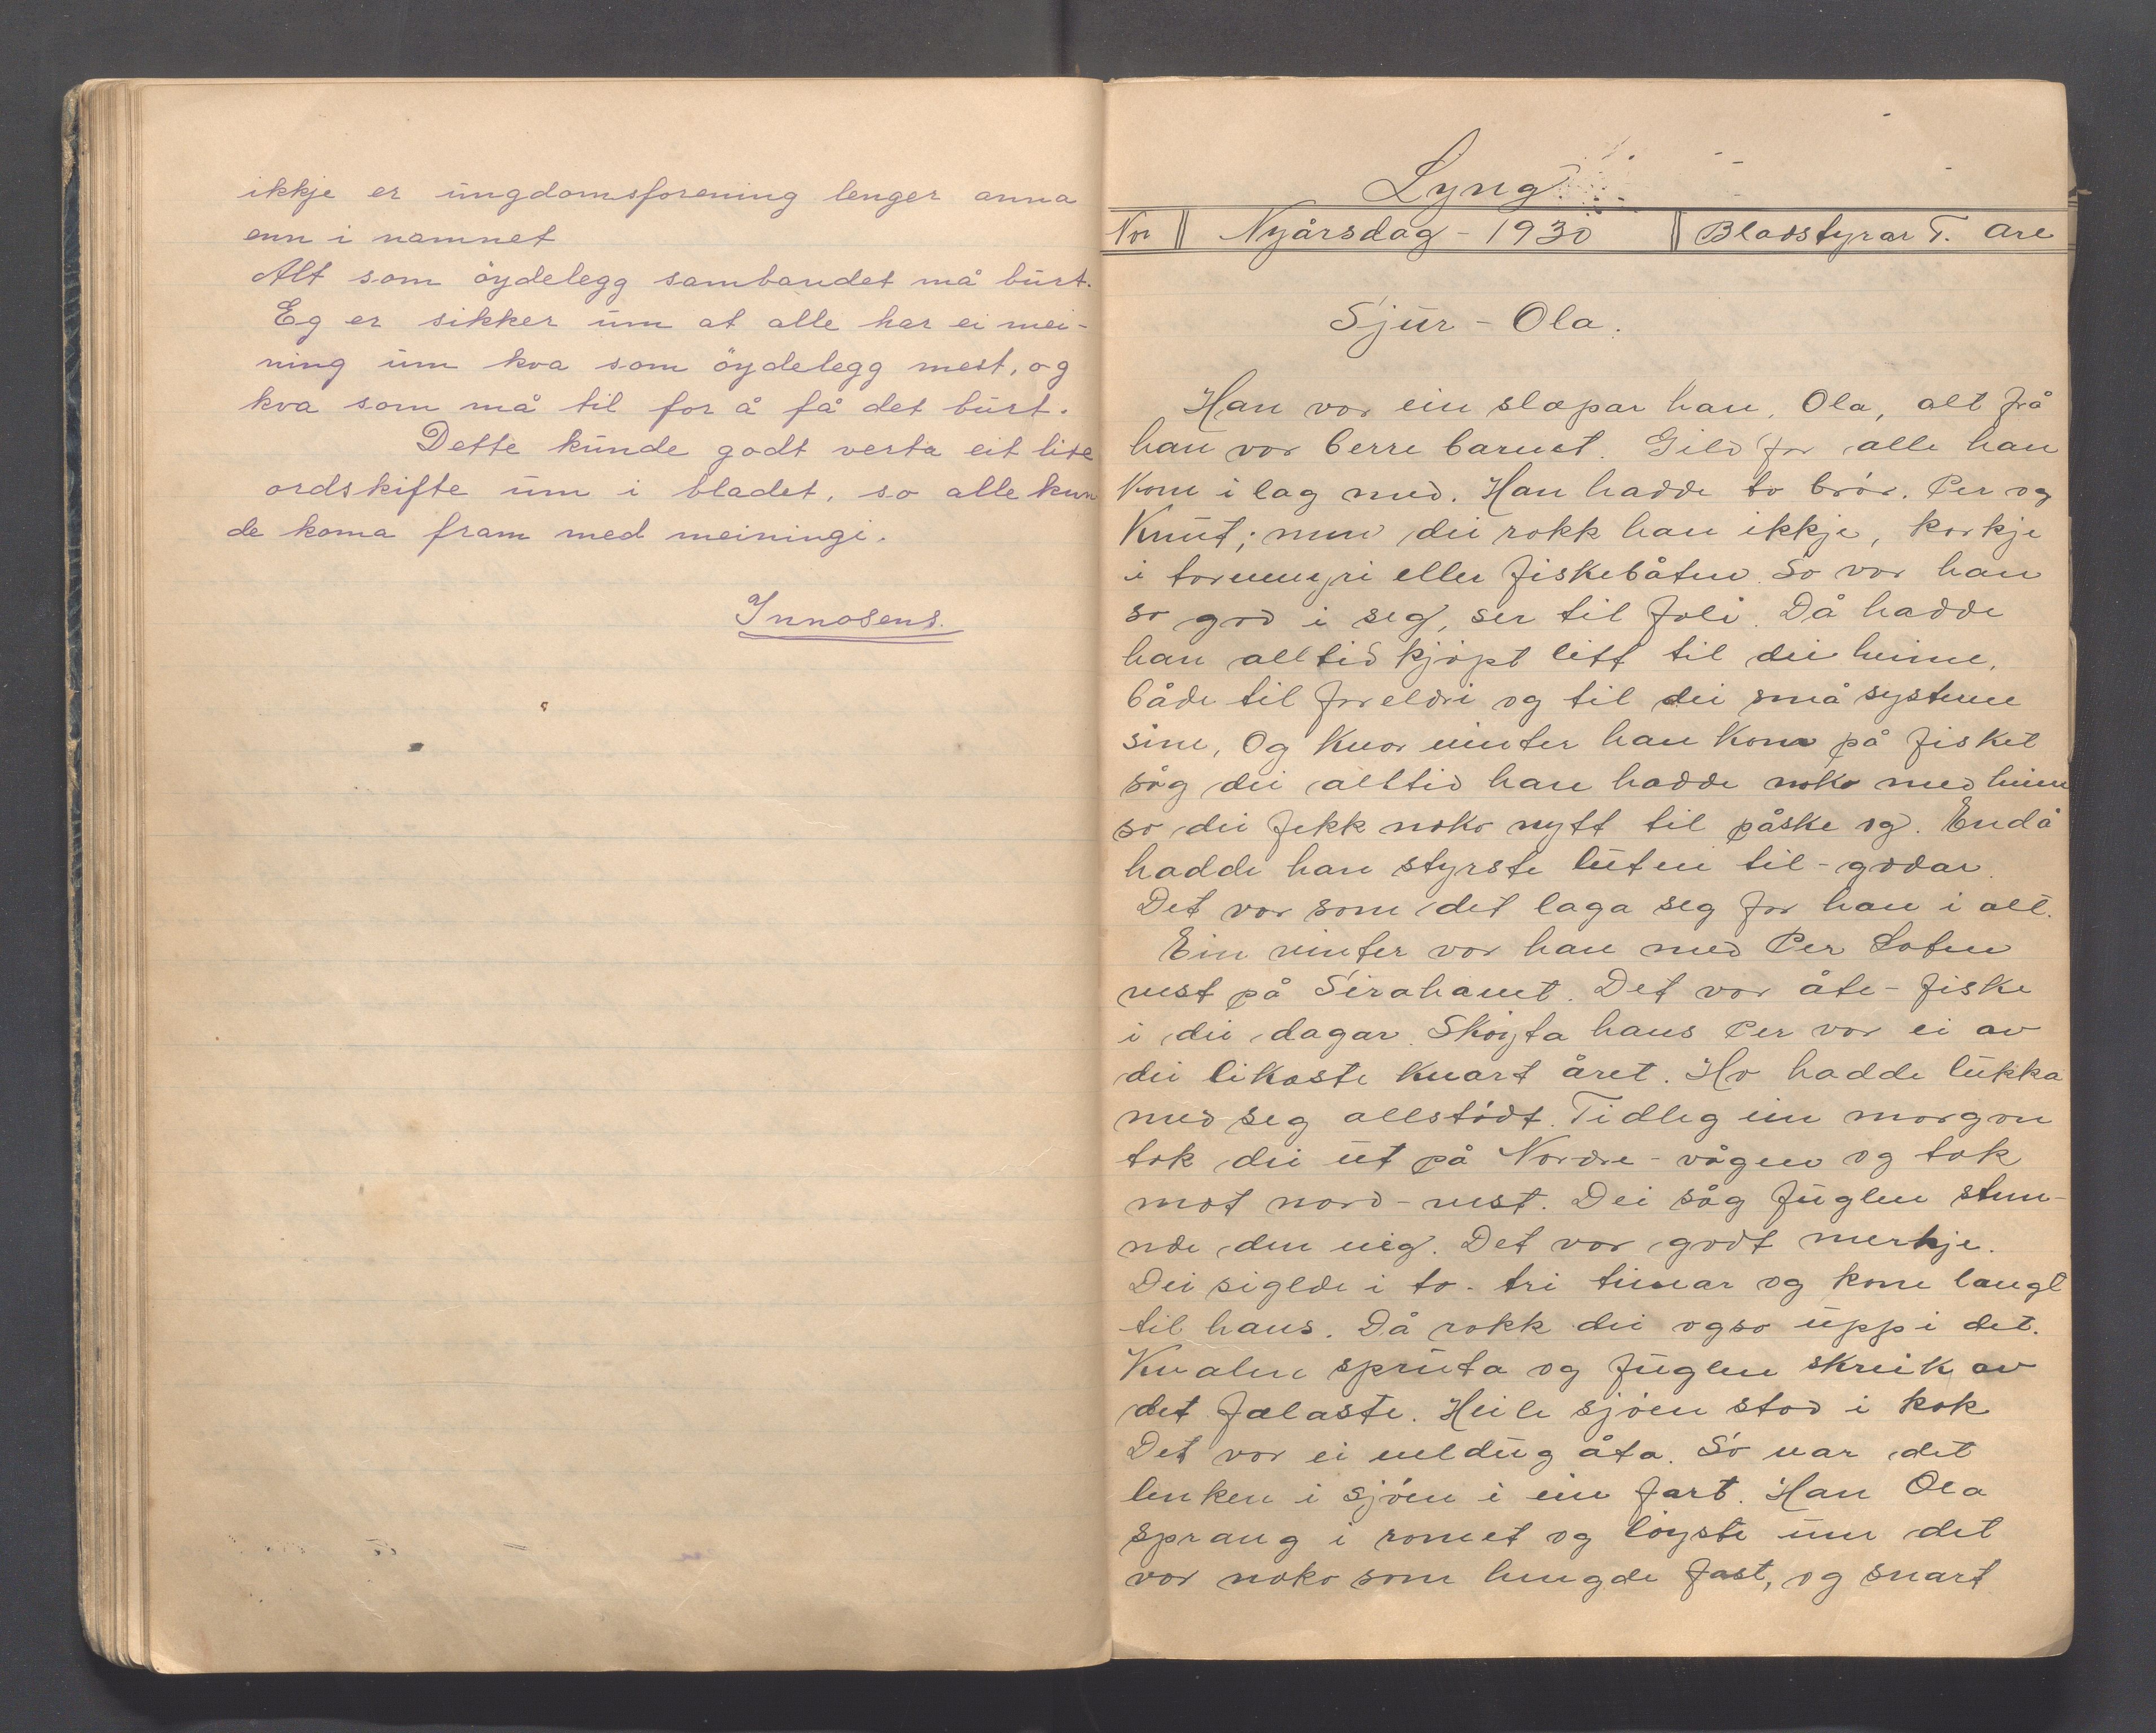 ikkje er ungdomsforening lenger anna
enn i namnet
Alt som öydelegg sambandet må burt.
Eg er sikker um at alle har ei mei-
ning um kva som öydelegg mest, og
kva som må til for å få det burt.
Dette kunde godt verta eit lite
ordskifte um i bladet, so alle kun
de koma fram med meiningi.
Innosens.
Lyng.
Nr Nyårsdag - 1930 Bladstyrar T. Are
Sjur - Ola.
Han vor ein slæpar han, Ola, alt frå
han vor berre barnet. Gild for alle han
kom i lag med. Han hadde to brór. Per og
Knut; men dei rokk han ikkje, korkje
i torvmyri eller fiskebåten. So vor han
so god i seg, ser til Joli. Då hadde
han alltid kjöpt litt til dei heime,
både til foreldri og til dei små systrene
sine. Og kvor vinter han kom på fisket
såg dei alltid han hadde noko med heim
so dei fekk noko nytt til påske og. Endå
hadde han styrste luten til-godar.
Det vor som det laga seg for han i alt.
Ein vinter vor han med Per Loten
vest på Sirahavet. Det vor åte-fiske
i dei dagar. Sköyta hans Per vor ei av
dei likaste kvart året. Ho hadde lukka
med seg allstödt. Tidleg ein morgon
tok dei ut på Nordre-vågen og tok
mot nord-vest. Dei såg fuglen stem-
nde den veg. Det vor godt merkje.
Dei siglde i to-tri timar og kom langt
til havs. Då rokk dei ogso uppi det.
Kvalen spruta og fuglen skreik av
det fælaste. Heile sjöen stod i kok
Det vor ei veldug åta. So var det
lenken i sjöen i ein fart. Han Ola
sprang i romet og löyste um det
vor noko som hengde fast, og snart